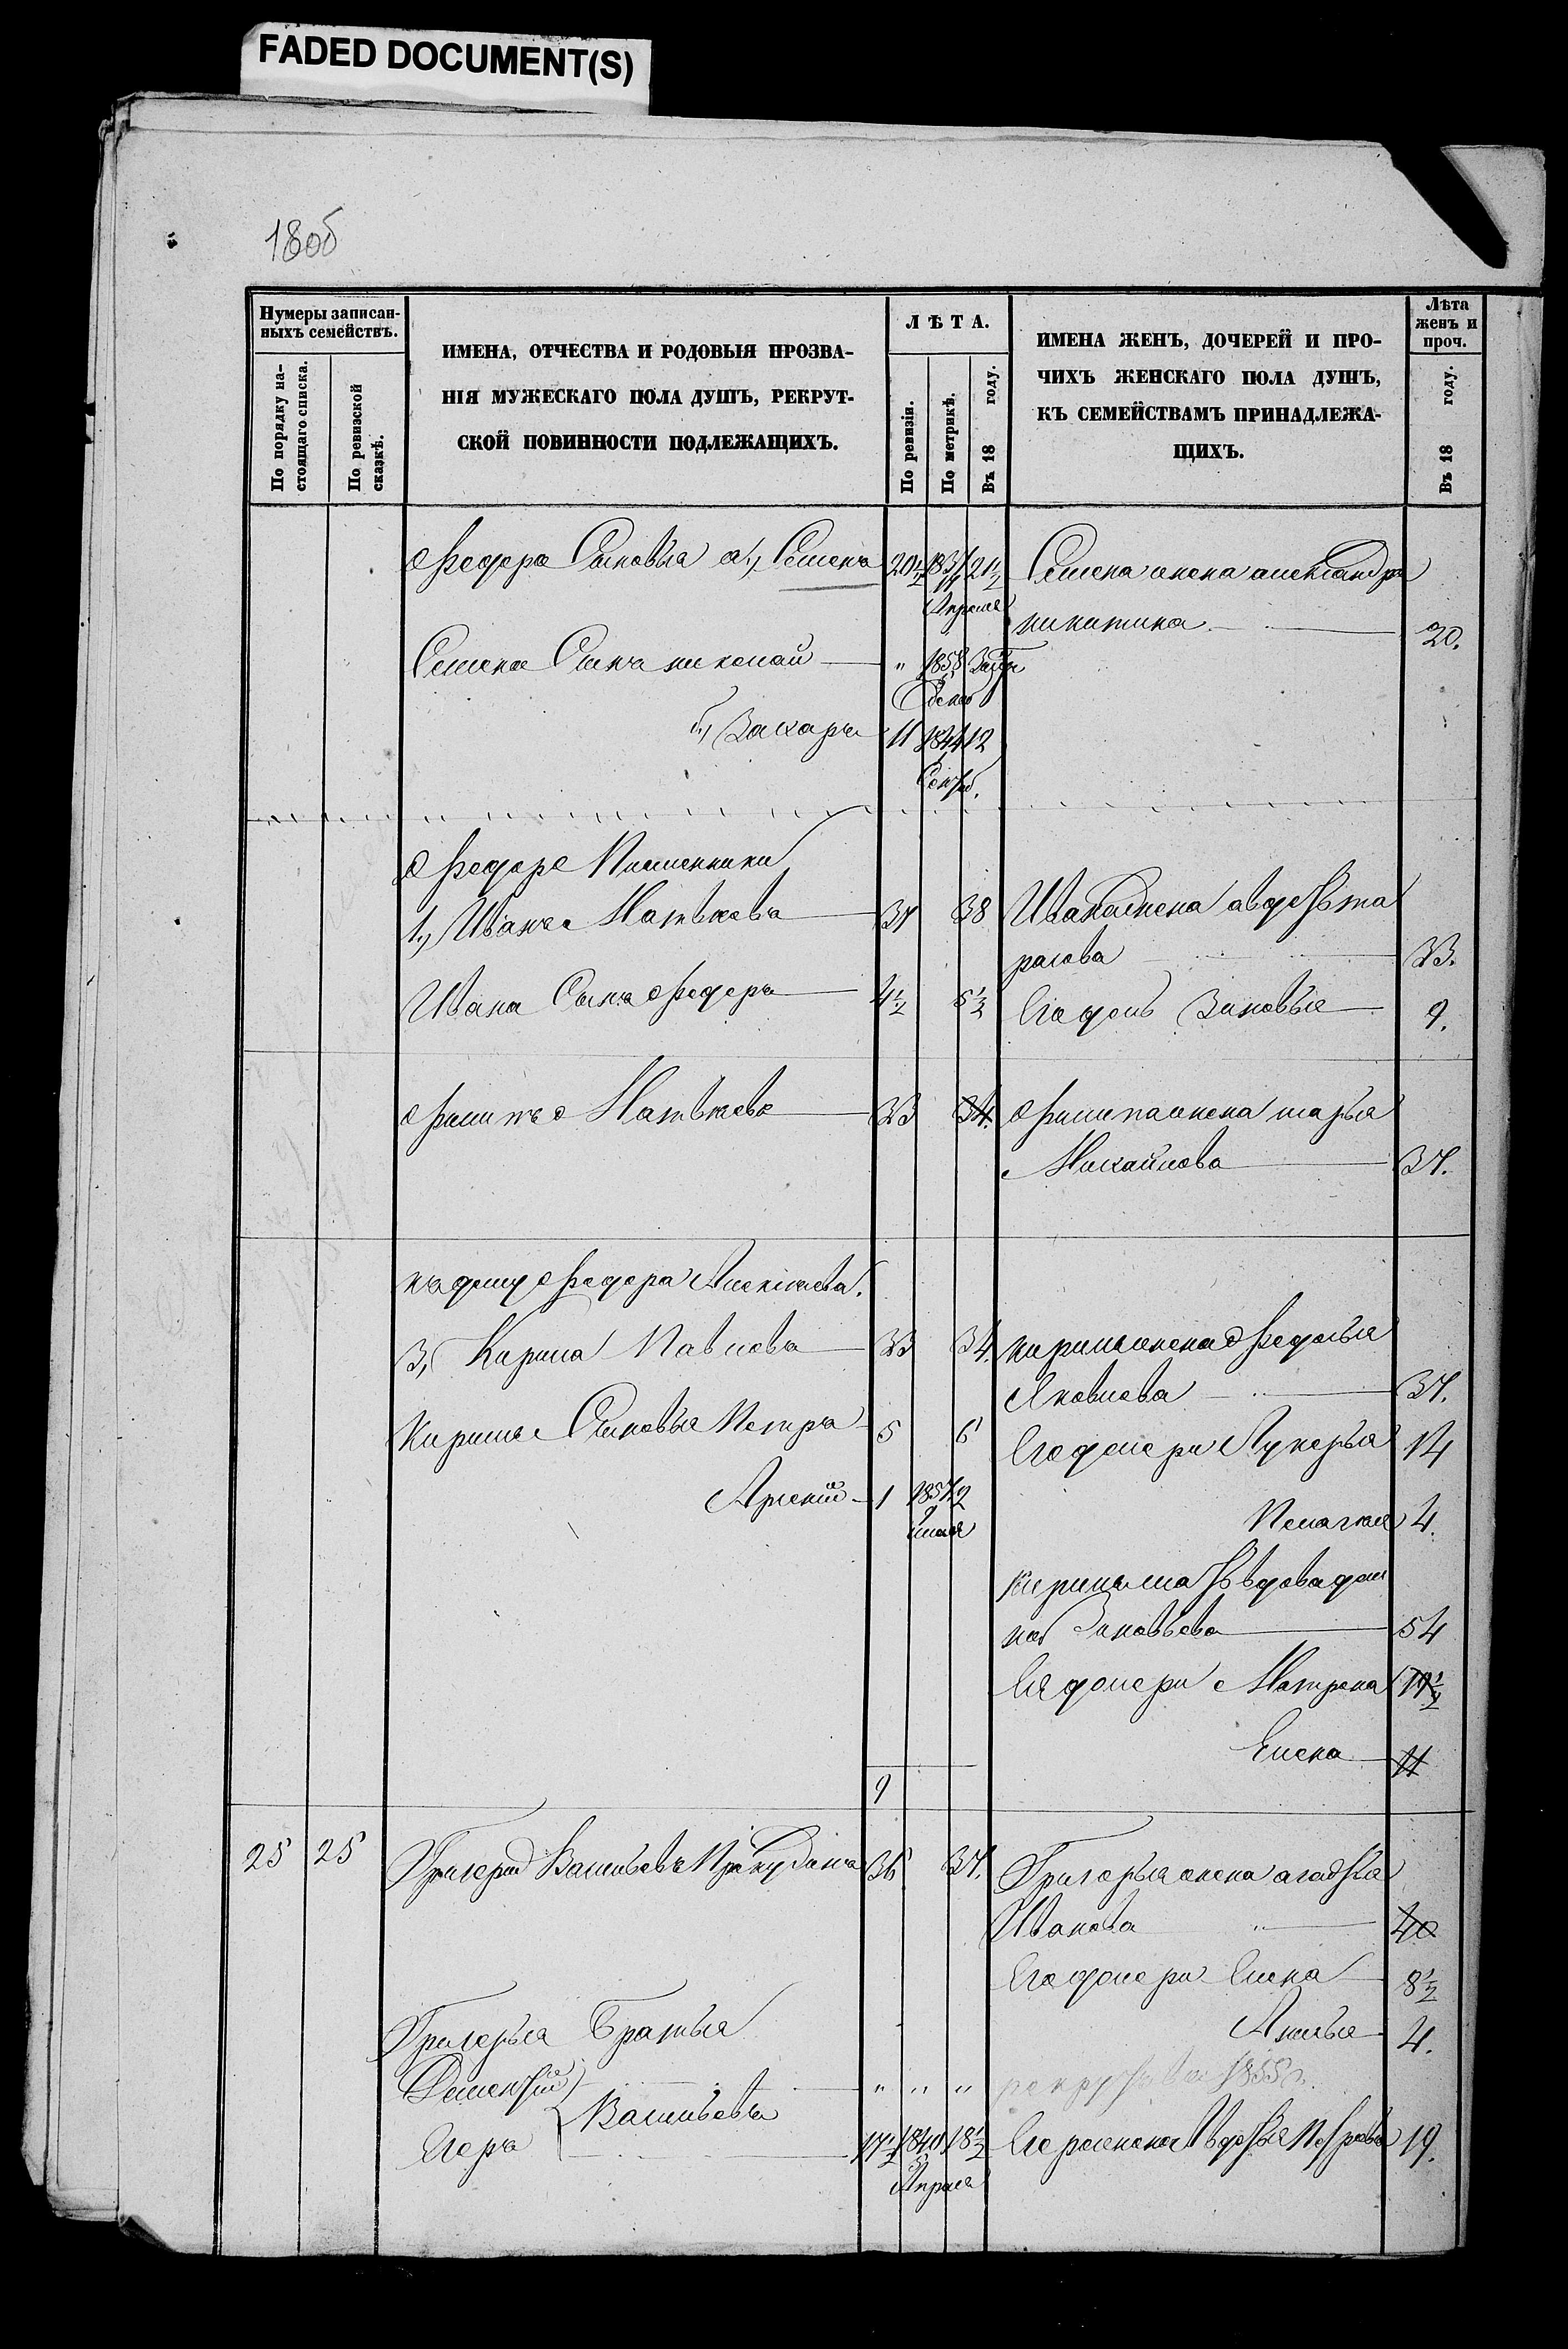 FADED DOCUMENT(S)
18об
Нумеры записан-
ныхъ семействъ.
По порядку на-
стоящаго списка.
По ревизской
сказкѣ.
ИМЕНА, ОТЧЕСТВА И РОДОВЫЯ ПРОЗВА-
НІЯ МУЖЕСКАГО ПОЛА ДУШЪ, РЕКРУТ-
СКОЙ ПОВИННОСТИ ПОДЛЕЖАЩИХЪ.
ЛѢТА.
По ревизіи.
По метрикѣ.
Въ 18 году.
ИМЕНА ЖЕНЪ, ДОЧЕРЕЙ И ПРО-
ЧИХЪ ЖЕНСКАГО ПОЛА ДУШЪ,
КЪ СЕМЕЙСТВАМЪ ПРИНАДЛЕЖА-
ЩИХЪ.
Лѣта
женъ и
проч.
Въ 18 году.
Федора Сыновья а., Семенъ 20½ 1837 21½ Семена жена александра
Апреля
никитина 20.
Семена Сынъ николай " 1858
б., Захаръ 11 1844 12
Сентяб.
Федора Племенники
1., Иванъ Матвѣевъ 37 38 Ивана жена авдотья та
расова 33.
Ивана Сынъ Федоръ 4½ 5½ Его дочь Зиновья 9.
Филипъ Матвѣевъ 33 34. Филипа жена марья
Михайлова 37.
къ дому Федора Алексѣева.
3, Кирила Павловъ 33 34. кирилы жена Федосья
Яковлева 37.
Кирилы Сыновья Петръ 5 6 Его дочери Лукерья 14
Арсений 1 1857 2
июля
Пелагея 4.
кирилы мать вдова дом
на Зиновьева 54
Ея дочери Матрена 17½
Елена 11
9
25 25 Григорий Васильевъ Пракудинъ 36 37. Григорья жена агафья
Иванова 40
Его дочери Елена 8½
Акилья 4.
Григорья Братья
Дементий " " " рекрутъ 1855 г.
Васильевы
Егоръ 17½ 1840 18½ Егора жена Авдотья Петрова 19.
Апреля